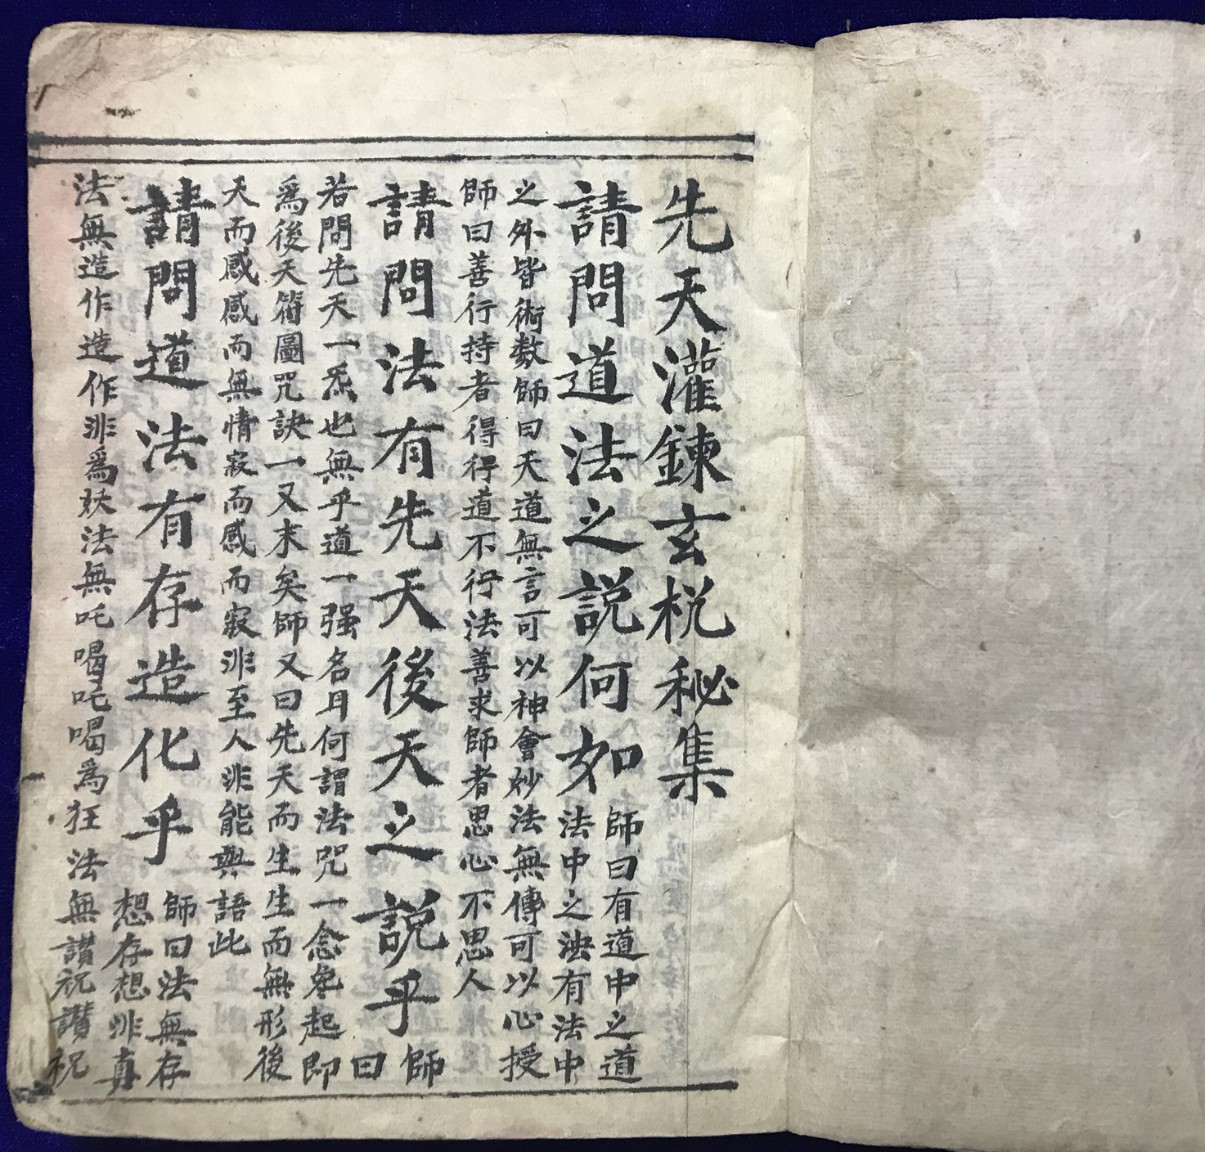 先天灌鍊玄梲秘集
請問道法之説何如
師曰有道中之道
法中之法有法中
之外皆術数師曰天道無言可以神會妙法無傳可以心授
師曰善行持者得行道不行法善求師者思心不思人
請問法有先天後天之説乎
師
曰
若問先天一炁也無乎道一强名耳何謂法咒一念皃起即
爲後天符圖咒訣一又末矣師又曰先天而生生而無形後
天而感感而無情寂而感而寂非至人非能與語此
請問道法有存造化乎
師曰法無存
想存想非真
法無造作造作非爲妖法無吒喝吒喝爲狂法無讃祝讃祝